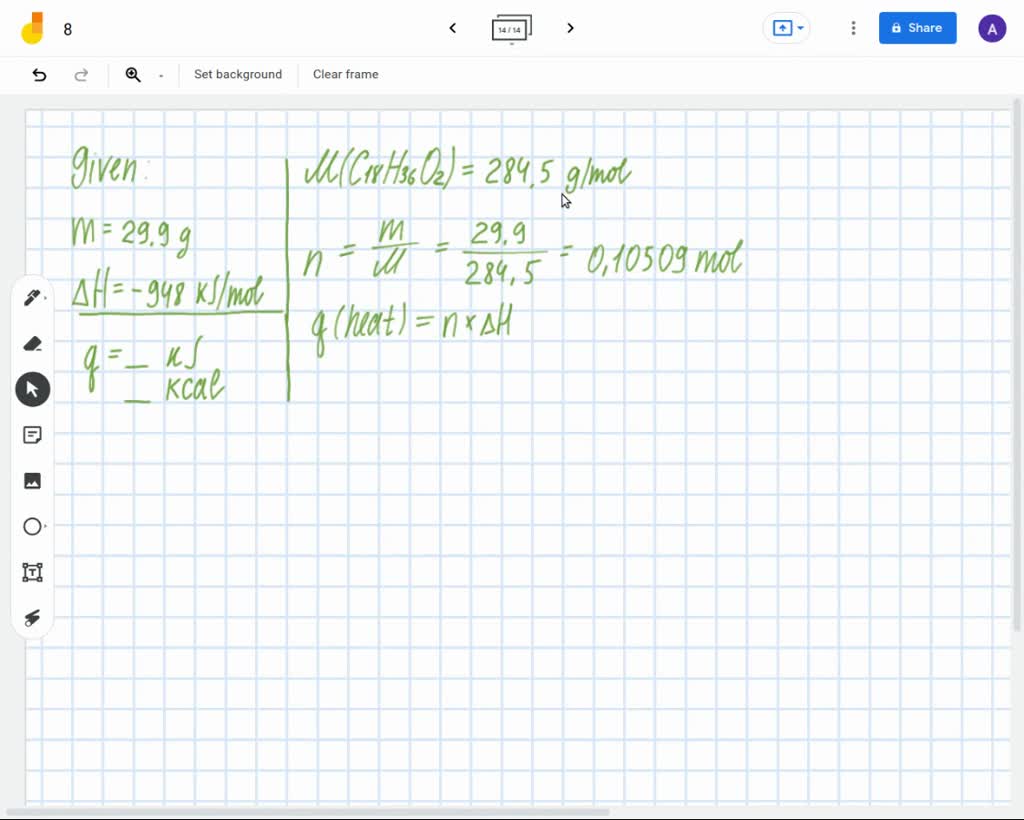 8
14 / 14
Share
A
Set background
Clear frame
Given:
m = 29.9 g
ΔH = -948 KJ/mol
q = _ KJ
_ Kcal
M(C18H36O2) = 284.5 g/mol
n = m/M = 29.9/284.5 = 0,10509 mol
q (heat) = n × ΔH